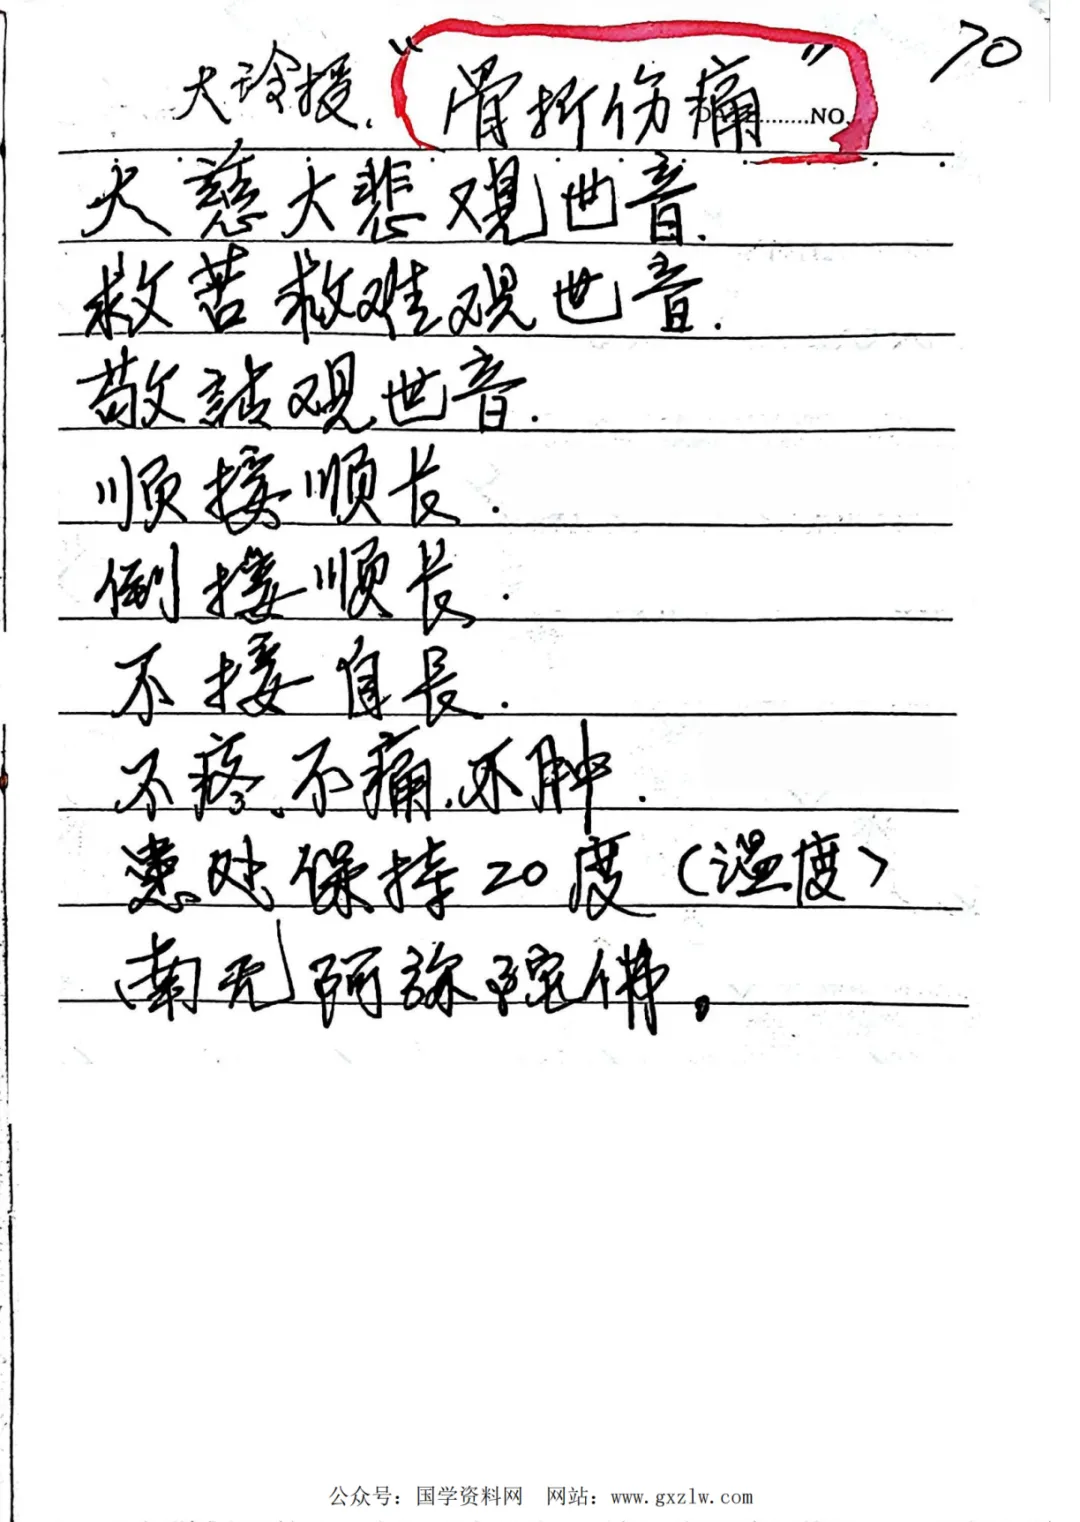 70
大泠授."骨折伤痛"
DATE.........NO.
大慈大悲观世音.
救苦救难观世音.
敬請观世音.
顺接顺长.
倒接顺長.
不接自長.
不疼、不痛、不肿.
患处保持20度(温度)
南无阿弥陀佛。
公众号：国学资料网 网站：www.gxzlw.com